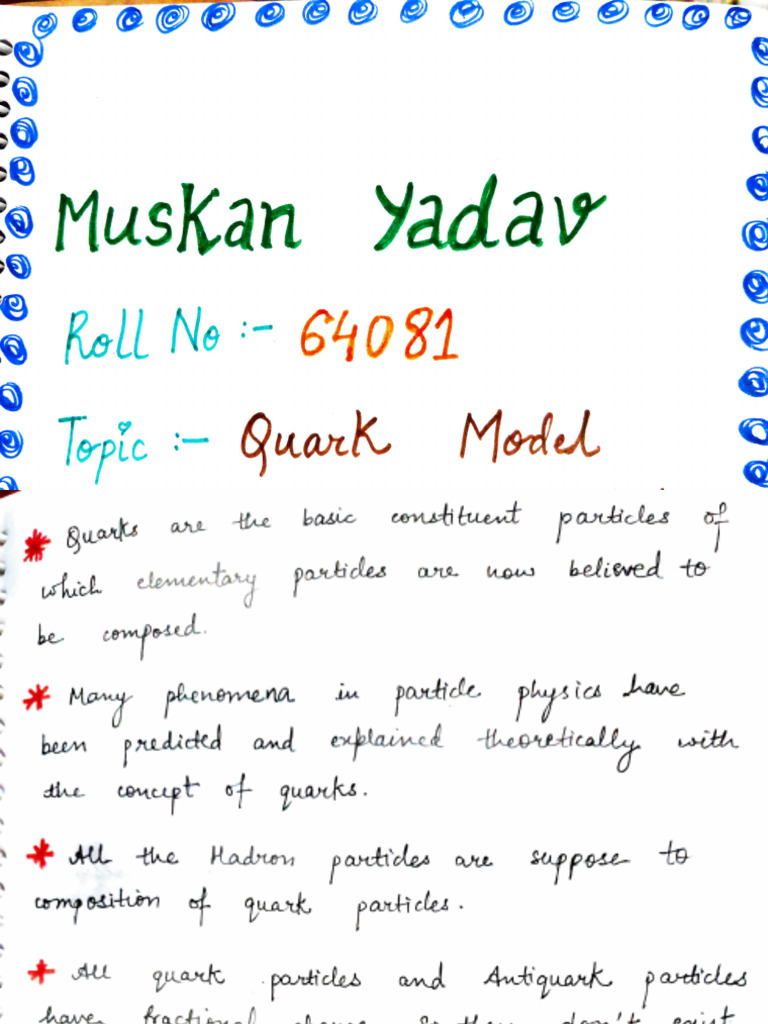 Muskan Yadav
Roll No :- 64081
Topic :- Quark Model
* Quarks are the basic constituent particles of
which elementary particles are now believed to
be composed.
* Many phenomena in particle physics have
been predicted and explained theoretically with
the concept of quarks.
* All the Hadron particles are suppose to
composition of quark particles.
* All quark particles and Antiquark particles
have fractional charge. So they don't exist